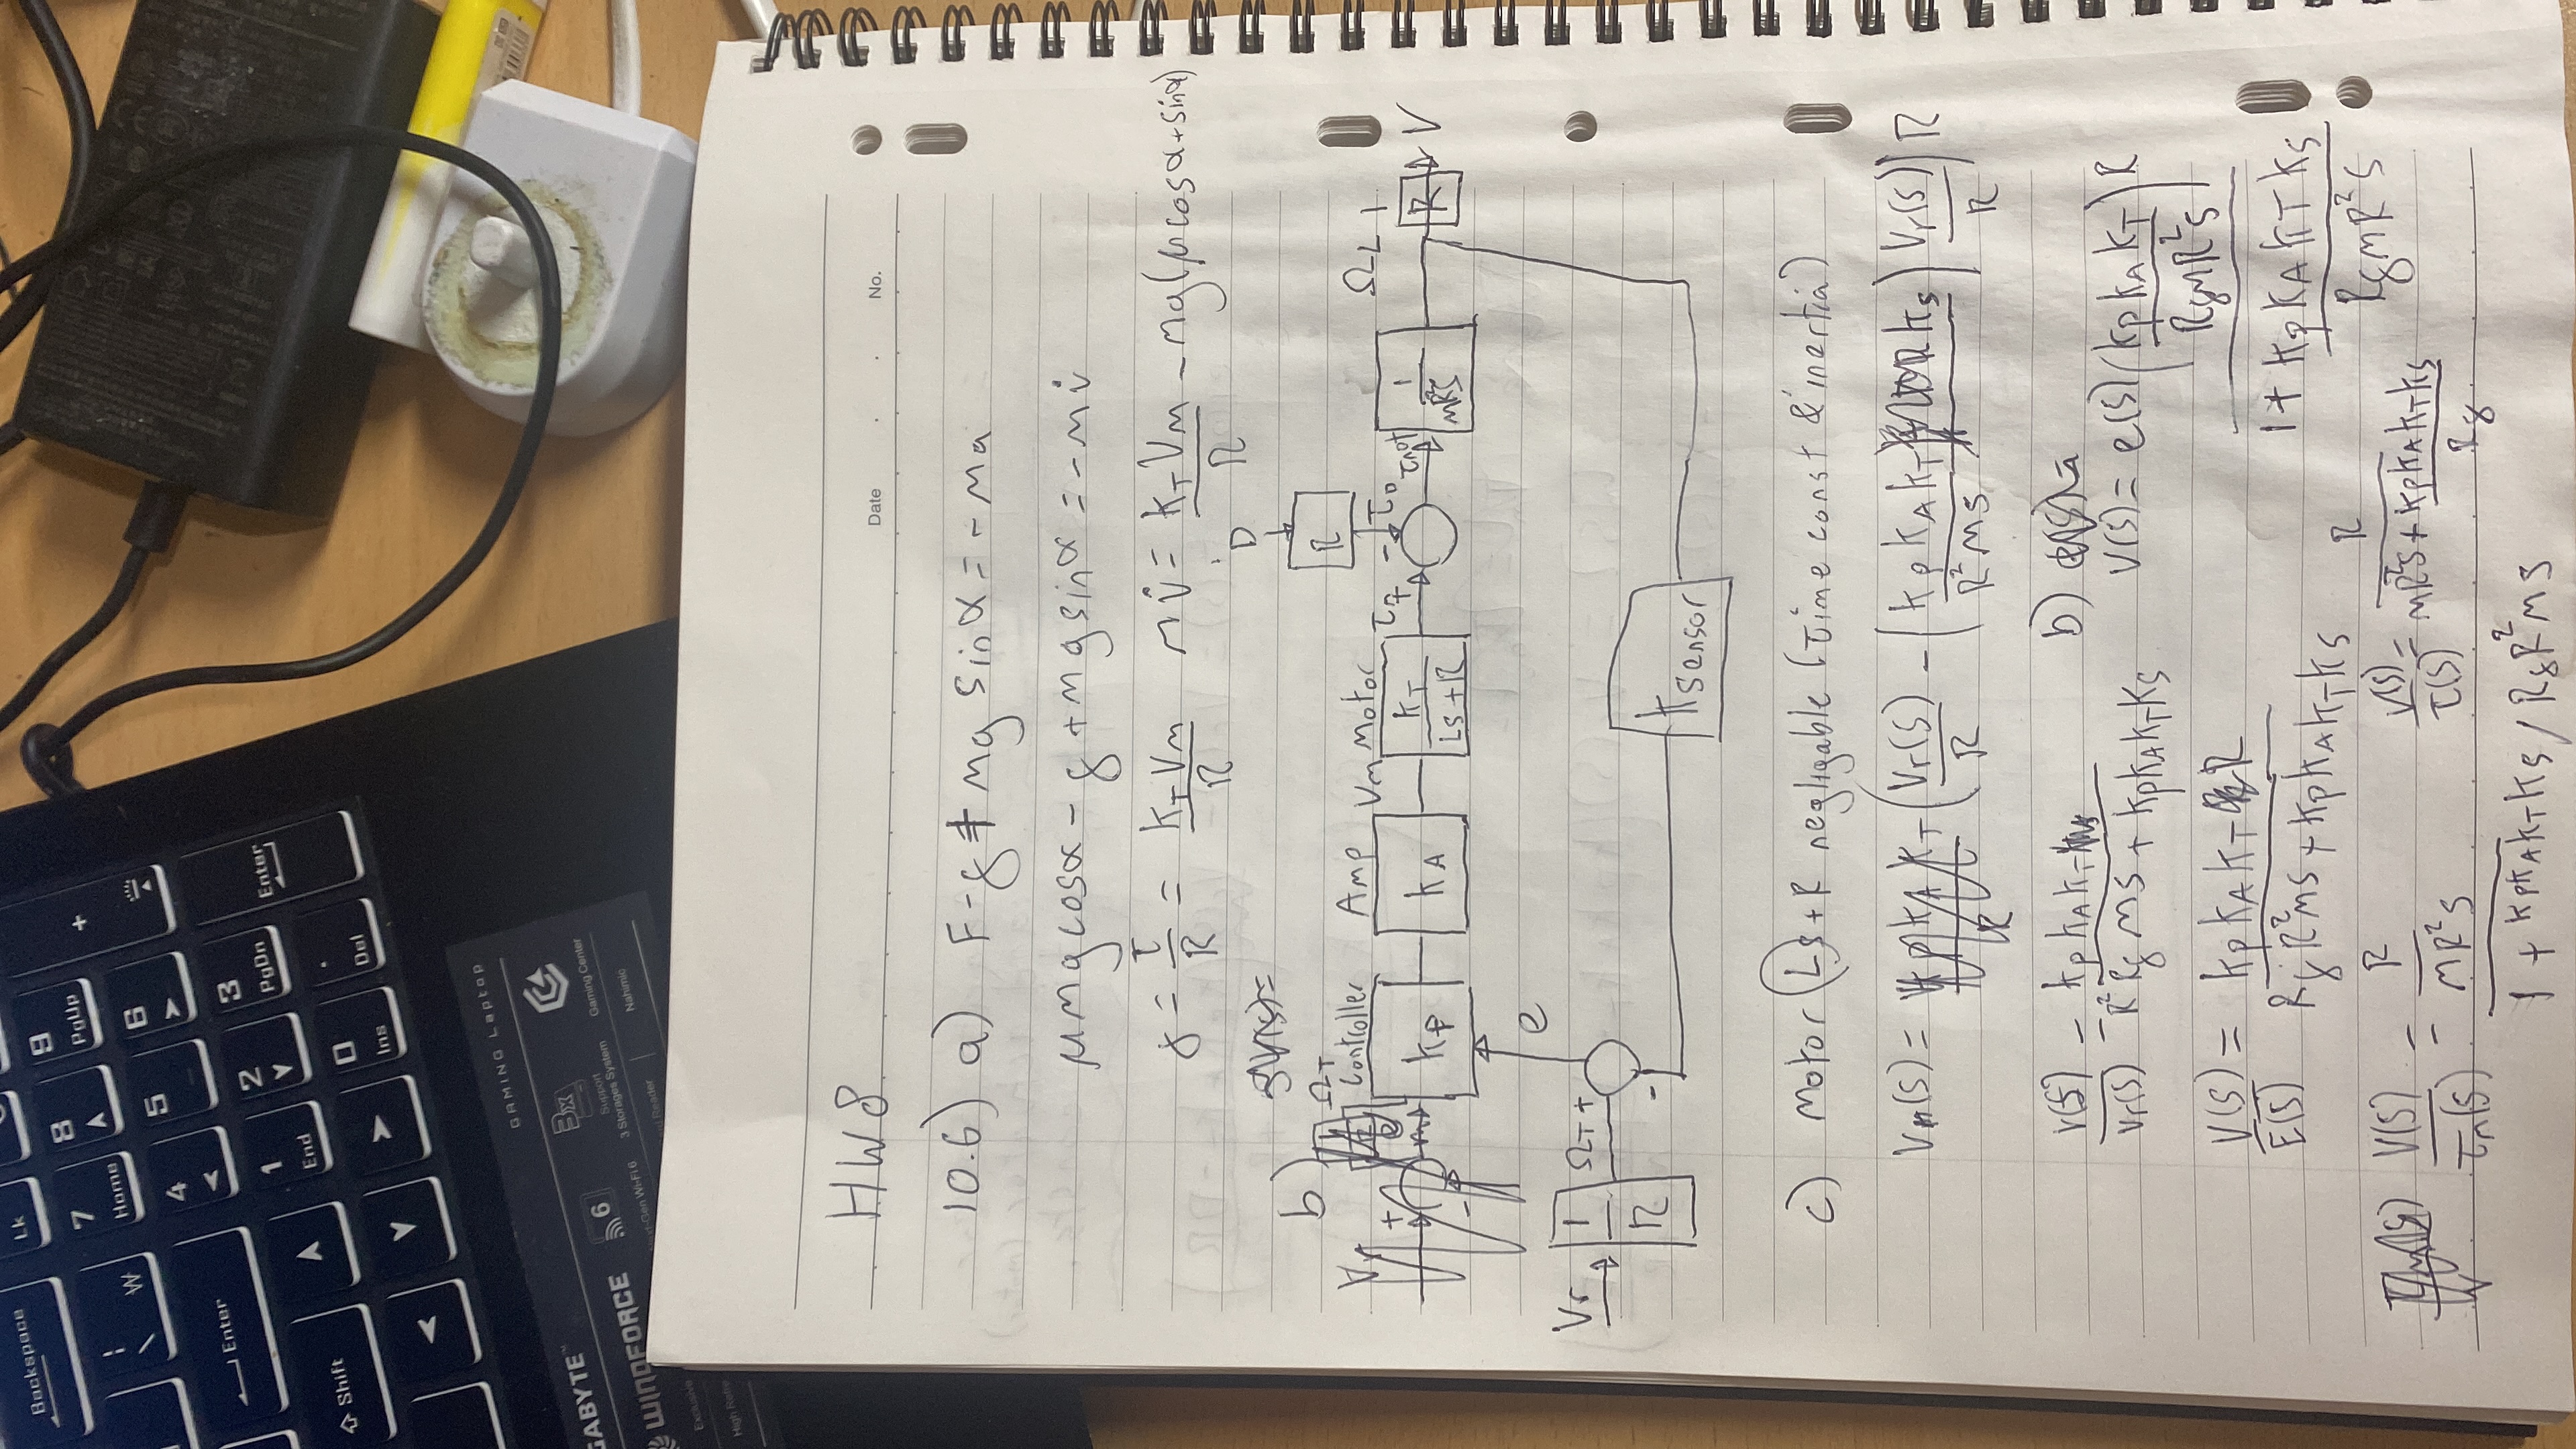 Backspace
Lk
7
Home
8
9
PgUp
+
\
₩
4
5
6
Enter
1
End
2
3
PgDn
Enter
Shift
0
Ins
.
Del
GAMING Laptop
GABYTE™
WINDFORCE
6
3x
Support
3 Storages System
Gaming Center
Nahimic
Exclusive
HW8
Date . . No.
10.6) a) F - f + mg sinα = -ma
μmgcosα - f + mgsinα = -mv̇
f = τ/R = K_T V_m / R  mv̇ = K_T V_m / R - mg(μcosα + sinα)
D
b)
Ω_T
Controller
Amp
V_m Motor
R
Ω_L
+
-
e
K_P
K_A
K_T / (Ls+R)
-
τ_D
τ_not
1 / mR²s
1 / R
V
e
V_r
1 / R
Ω_T +
-
K sensor
c) Motor Ls + R negligable (Time const & inertia)
(V_r(s)/R - (K_P K_A K_T K_s / R²ms) V_r(s)/R) R
V(s)/V_r(s) = K_P K_A K_T / (R² R_f ms + K_P K_A K_T K_s)
b)
V(s) = e(s) (K_P K_A K_T / R_f mR²s) R / (1 + K_P K_A K_T K_s / R_f mR²s)
V(s)/E(s) = K_P K_A K_T R / (R_f R²ms + K_P K_A K_T K_s)
V(s)/τ_n(s) = (R / mR²s) / (1 + K_P K_A K_T K_s / R_f R²ms)
V(s)/τ(s) = R / (mR²s + K_P K_A K_T K_s / R_f)